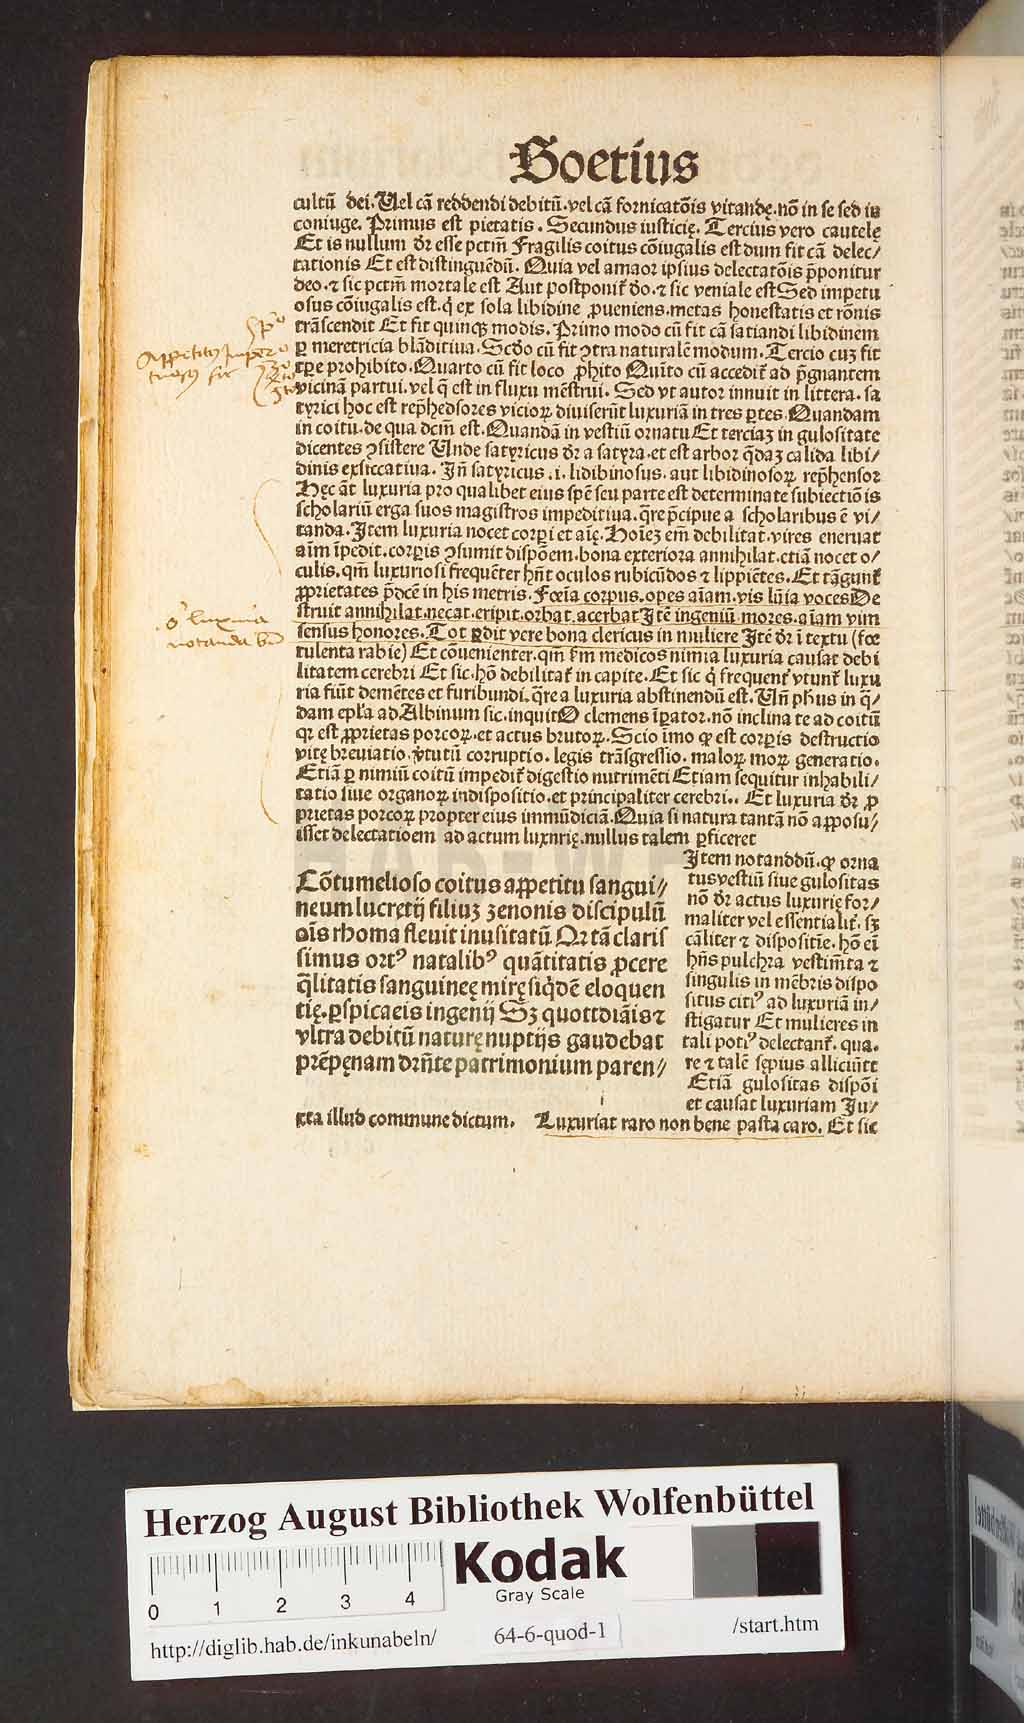 Boetius
cultū dei. Uel cā reddendi debitū. vel cā fornicatōis vitandę. nō in se sed in
coniuge. Primus est pietatis. Secundus iusticię. Tercius vero cautelę
Et is nullum dr̄ esse pctm̄ Fragilis coitus cōiugalis est dum fit cā delec/
tationis Et est distinguēdū. Quia vel amaor ipsius delectatōis p̄ponitur
deo. ⁊ sic pctm̄ mortale est Aut postponit̄ d̄o. ⁊ sic veniale est Sed impetu
osus cōiugalis est. q̇ ex sola libidine ꝓueniens. metas honestatis et rōnis
trāscendit Et fit quinqꝫ modis. Primo modo cū fit cā satiandi libidinem
ꝑ meretricia blāditiua. Scd̄o cū fit ꝯtra naturalē modum. Tercio cuꝫ fit
tꝑe prohibito. Quarto cū fit loco ꝓhito Quīto cū accedit̄ ad p̄gnantem
vicinā partui. vel q̄ est in fluxu mēstrui. Sed vt autor innuit in littera. sa
tyrici hoc est rep̄hedsores vicioꝝ diuiserūt luxuriā in tres ꝑtes Quandam
in coitu. de qua dcm̄ est. Quandā in vestiū ornatu Et terciaꝫ in gulositate
dicentes ꝯsistere Unde satyricus dr̄ a satyra. et est arbor q̄daꝫ calida libi/
dinis exsiccatiua. Jn̄ satyricus .i. lidibinosus. aut libidinosoꝝ rep̄hensor
Hęc āt luxuria pro qualibet eius spē seu parte est determinate subiectiō is
scholariū erga suos magistros impeditiua. q̄re p̄cipue a scholaribus ē vi/
tanda. Jtem luxuria nocet corꝑi et aīę. Hoīeꝫ em̄ debilitat. vires eneruat
aīm īpedit. corꝑis ꝯsumit dispōem. bona exteriora annihilat. etiā nocet o/
culis. qm̄ luxuriosi frequēter hn̄t oculos rubicūdos ⁊ lippiētes. Et tāgunt̄
ꝓprietates p̄dcē in his metris. Fœīa corpus. opes aīam. vis lūīa voces De
struit annihilat. necat. eripit. orbat. acerbat Jtē ingeniū mores. aīam vim
sensus honores. Tot ꝑdit vere bona clericus in muliere Jtē dr̄ ī textu (fœ
tulenta rabie) Et cōuenienter. qm̄ s̄m medicos nimia luxuria causat debi
litatem cerebri Et sic. hō debilitat̄ in capite. Et sic q̇ frequent̄ vtunt̄ luxu
ria fiūt demētes et furibundi. q̄re a luxuria abstinendū est. Un̄ ph̄us in q̄/
dam epl̄a ad Albinum sic. inquit O clemens īꝑator. nō inclina te ad coitū
qꝛ est ꝓprietas porcoꝝ. et actus brutoꝝ. Scio īmo ꝙ est corꝑis destructio
vitę breuiatio. v̇tutū corruptio. legis trāsgressio. maloꝝ moꝝ generatio.
Etiā ꝑ nimiū coitū impedit̄ digestio nutrimēti Etiam sequitur inhabili/
tatio siue organoꝝ indispositio. et principaliter cerebri.. Et luxuria dr̄ ꝓ
prietas porcoꝝ propter eius immūdiciā. Quia si natura tantā nō apposu/
isset delectatioem ad actum luxurię. nullus talem ꝑficeret
Cōtumelioso coitus appetitu sangui//
neum lucrętij filiuꝫ zenonis discipulū
oīs rhoma fleuit inusitatū Qꝛ tā claris
simus ortꝰ natalibꝰ quātitatis ꝓcere
q̄litatis sanguineę mirę siq̇dē eloquen
tię. ꝑspicaeis ingenij Sꝫ quottdiāis ⁊
vltra debitū naturę nuptijs gaudebat
prēpęnam drn̄te patrimonium paren//
Jtem notanddū. ꝙ orna
tus vestiū siue gulositas
nō dr̄ actus luxurię for/
maliter vel essentialit̄. sꝫ
cāliter ⁊ dispositīe. hō eī
hn̄s pulchra vestim̄ta ⁊
singulis in mēbris dispo
situs citiꝰ ad luxuriā in/
stigatur Et mulieres in
tali potiꝰ delectant̄. qua.
re ⁊ talē sępius alliciūtt
Etiā gulositas dispōi
et causat luxuriam Ju/
xta illud commune dictum. Luxuriat raro non bene pasta caro. Et sic
Appetitꝰ Impetu
tuosꝰ fit
luxuria
notanda
Herzog August Bibliothek Wolfenbüttel
0 1 2 3 4
Kodak
Gray Scale
http://diglib.hab.de/inkunabeln/
64-6-quod-1
/start.htm